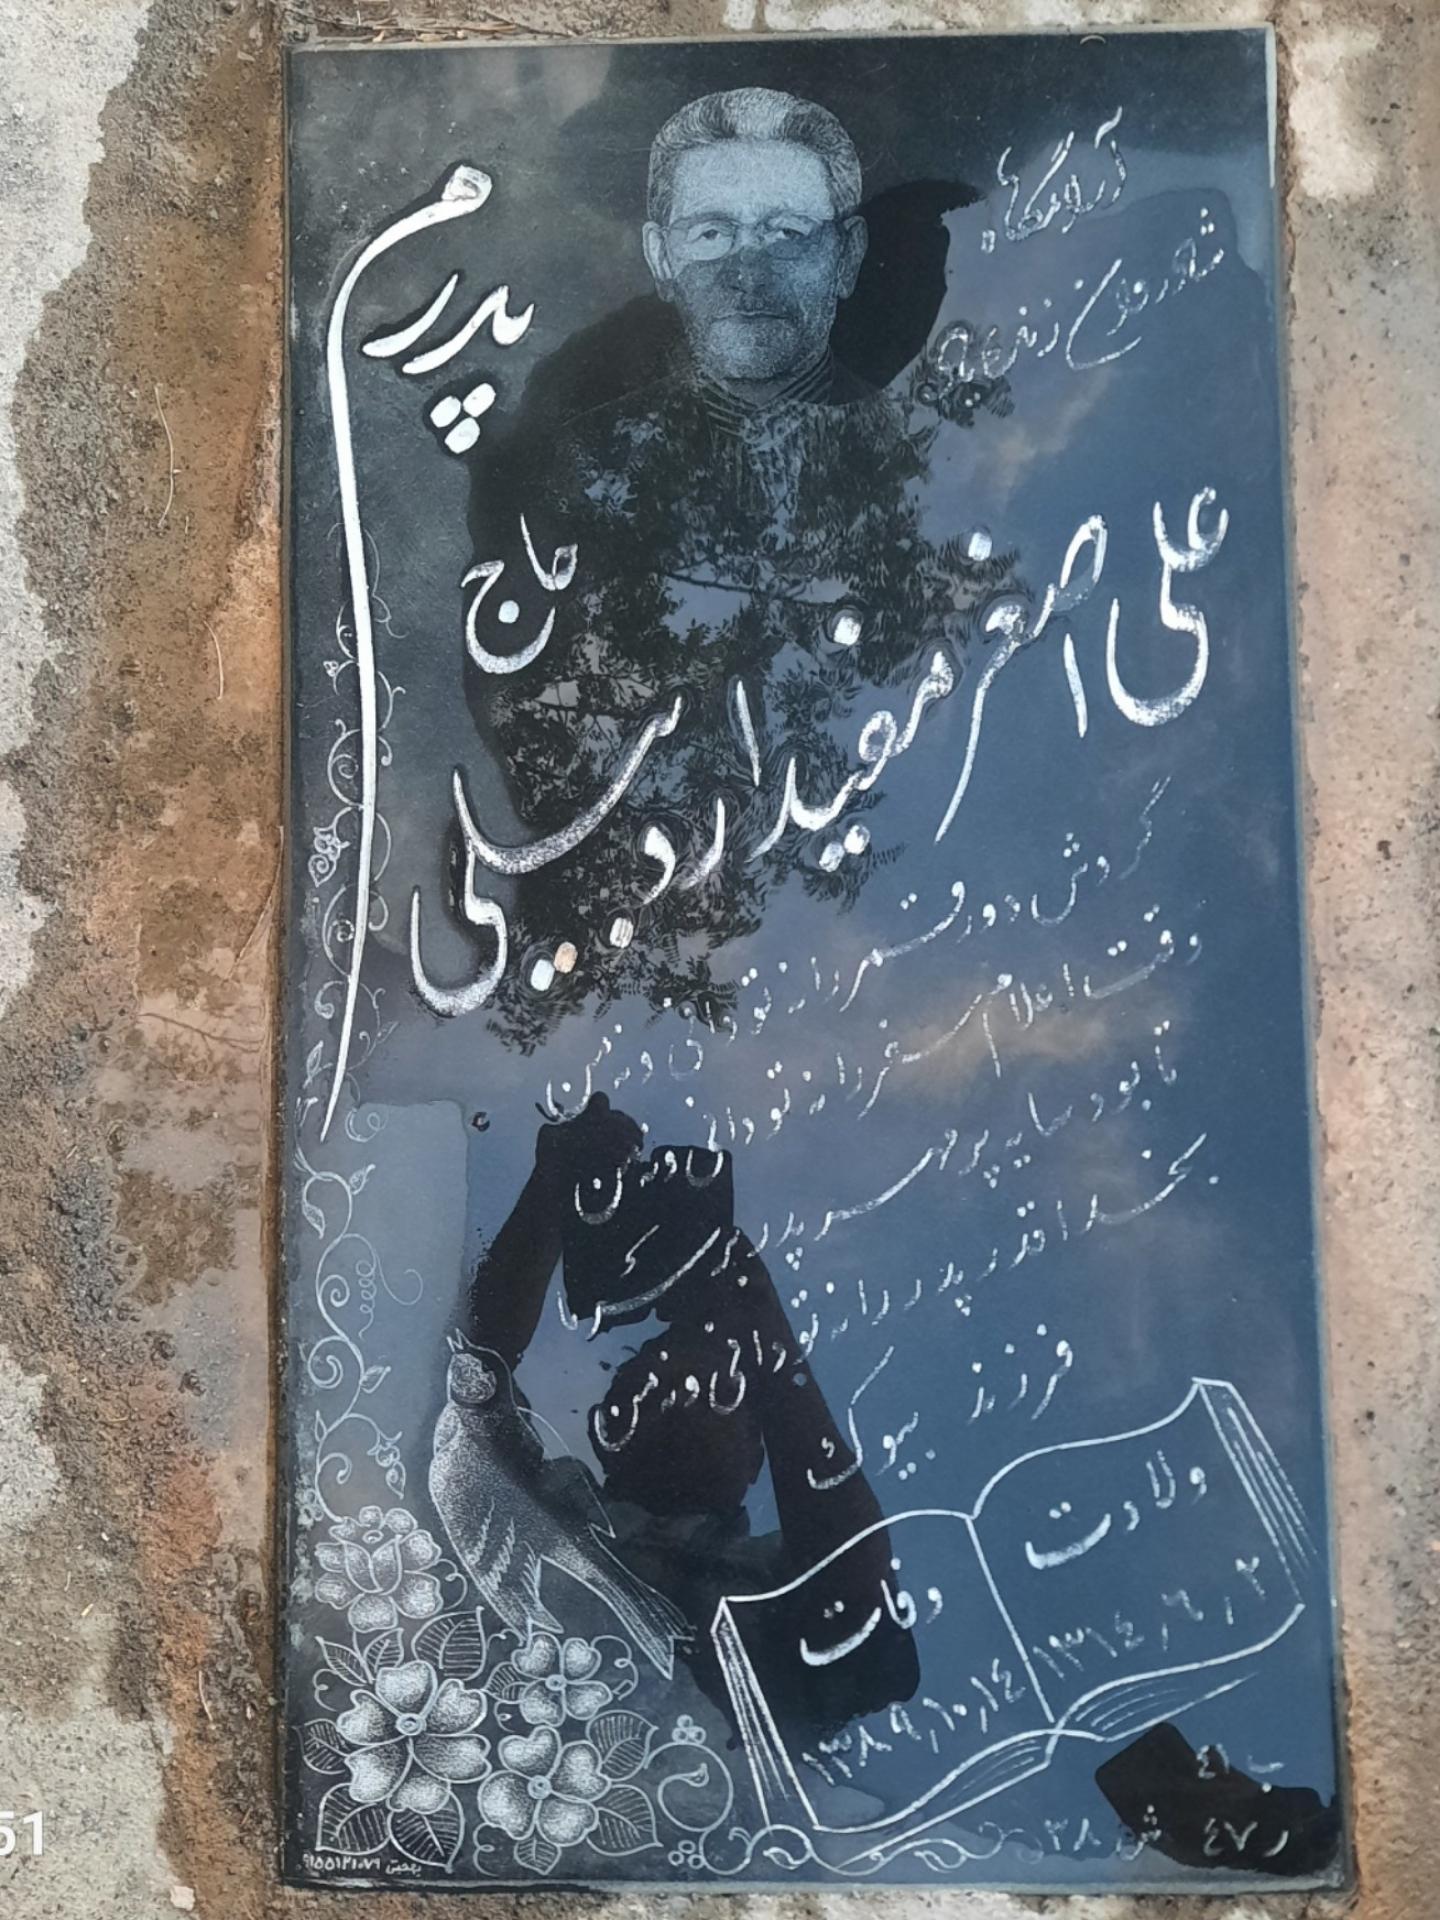 آرامگاه
شادروان زنده یاد
پدرم
حاج
علی اصغر مفید اردبیلی
گردش دور قمر را نه تو دانی و نه من
وقت اعلام سفر را نه تو دانی و نه من
تا بود سایه پر مهر پدر بر سر ما
بخدا قدر پدر را نه تو دانی و نه من
فرزند
بیوک
ولادت
۱۳۱٤٫٦٫۲
وفات
۱۳۸۹٫۱۰٫۱٤
ب ٤۱
ر ٤۷ ش ۳۸
بهجتی ۰۹۱۵۵۱۲۱۰۷۹
51